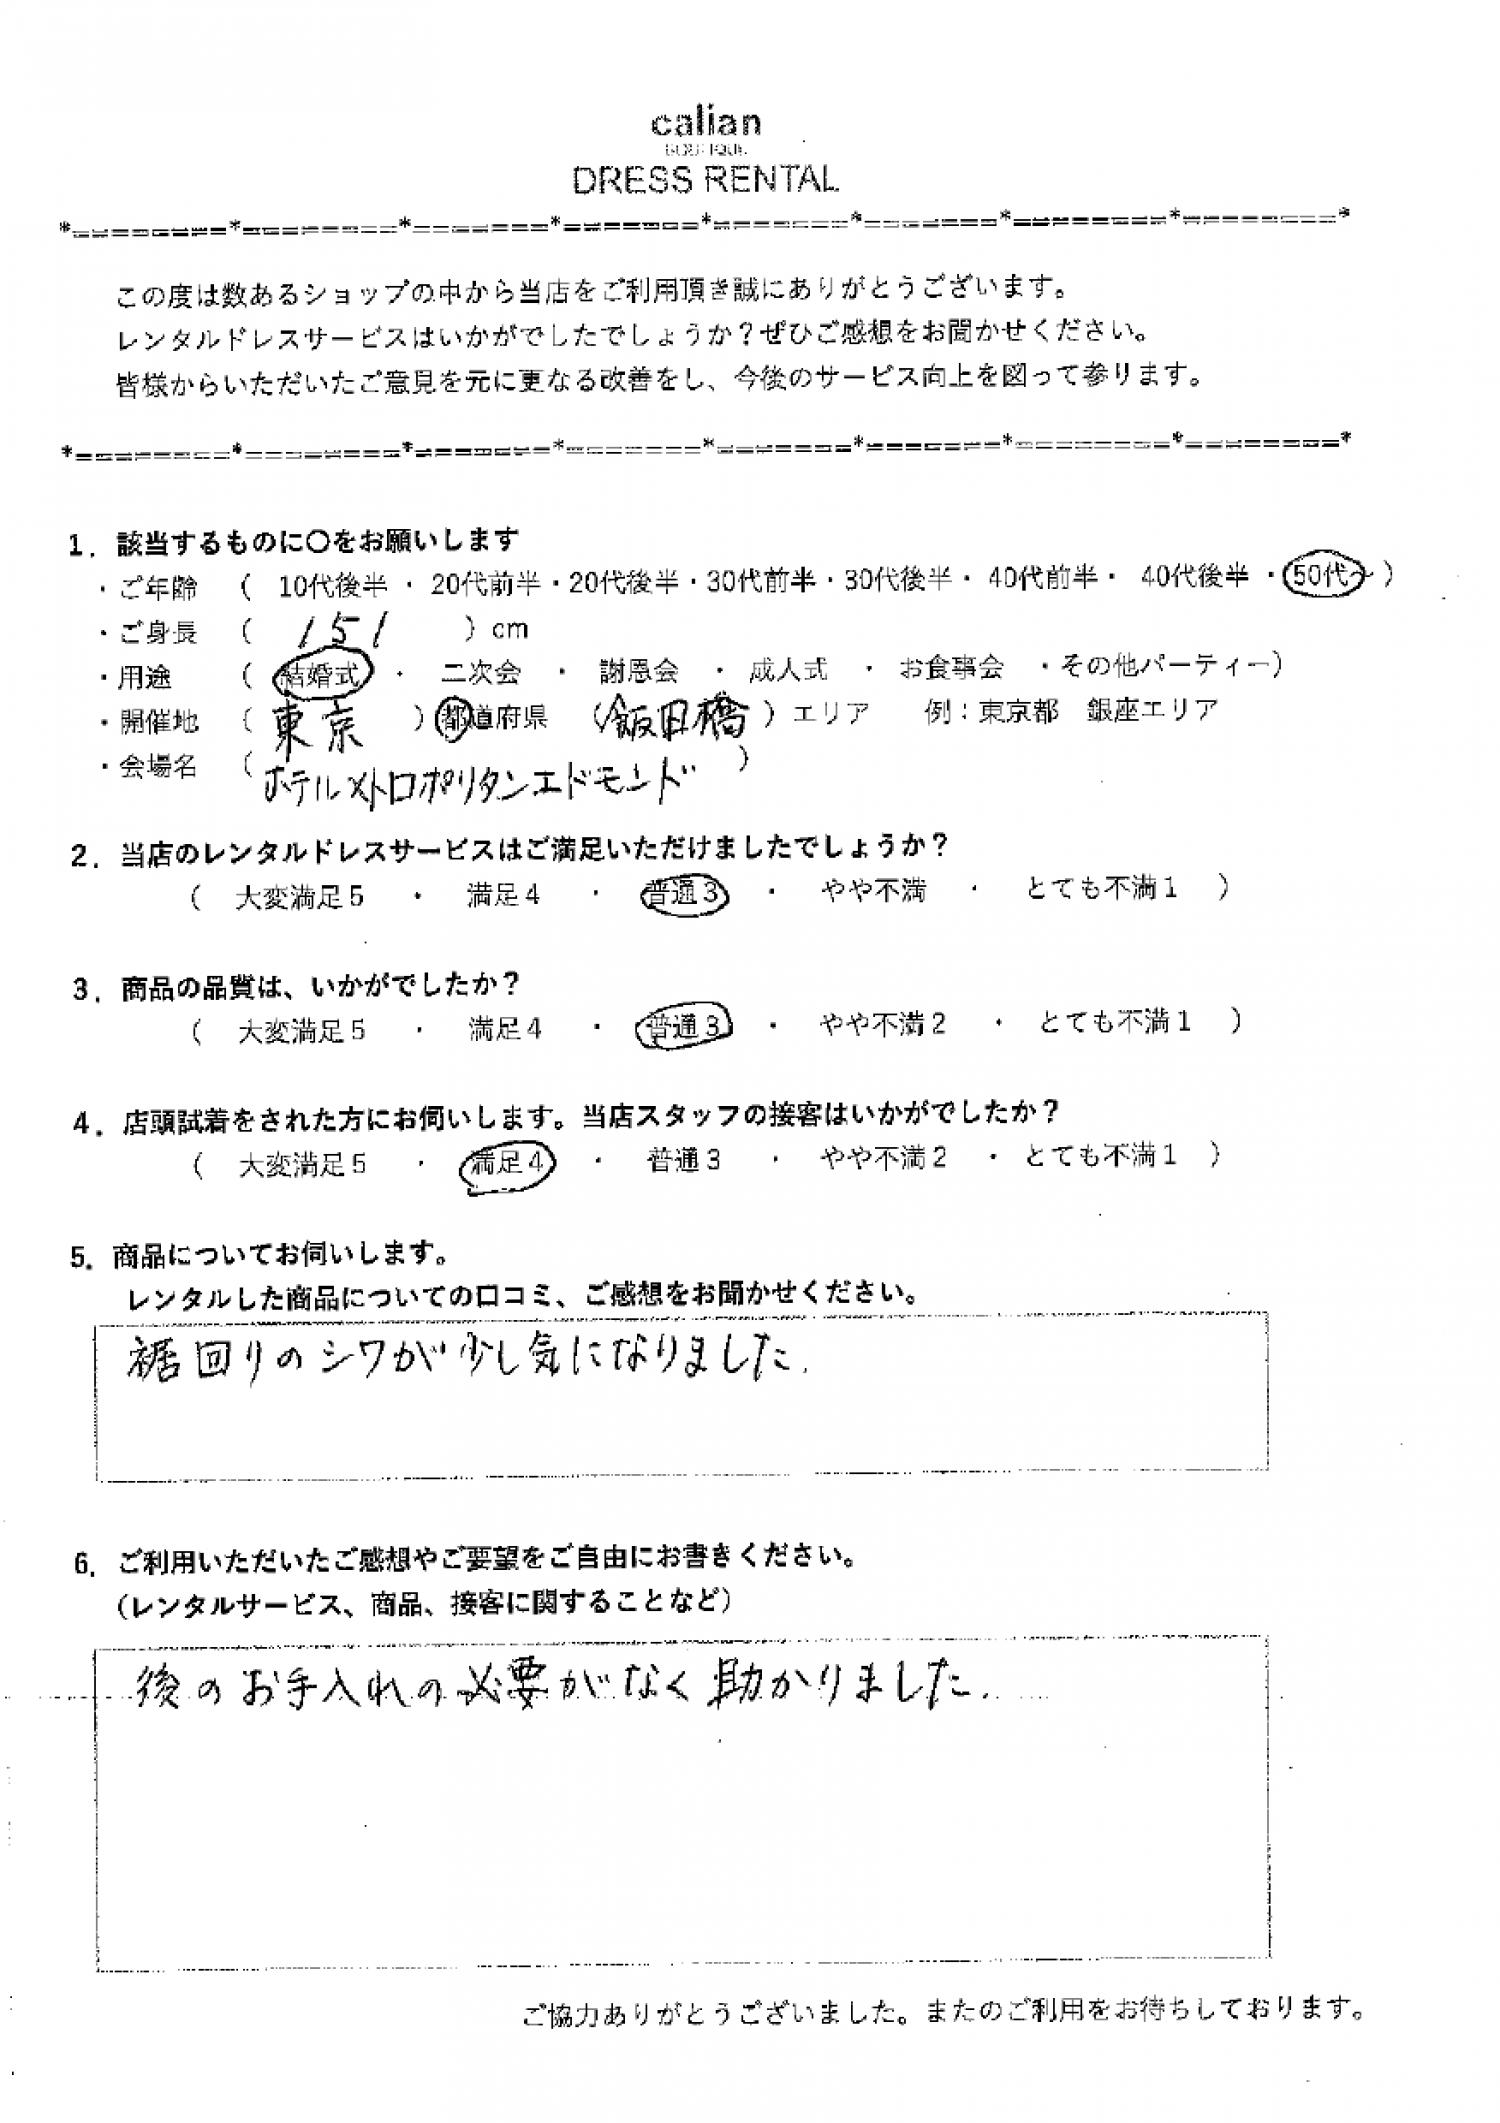 calian
BOUTIQUE
DRESS RENTAL
*========*========*=======*=======*=======*=======*========*========*
この度は数あるショップの中から当店をご利用頂き誠にありがとうございます。
レンタルドレスサービスはいかがでしたでしょうか？ぜひご感想をお聞かせください。
皆様からいただいたご意見を元に更なる改善をし、今後のサービス向上を図って参ります。
*========*========*=======*=======*=======*=======*========*========*
1．該当するものに〇をお願いします
・ご年齢 （ 10代後半 ・ 20代前半・20代後半・30代前半・30代後半・ 40代前半・ 40代後半 ・50代～ ）
・ご身長 （ 151 ）cm
・用途 （ 結婚式 ・ 二次会 ・ 謝恩会 ・ 成人式 ・ お食事会 ・その他パーティー）
・開催地 （ 東京 ）都道府県 （飯田橋 ）エリア 例：東京都 銀座エリア
・会場名 （ ホテルメトロポリタンエドモンド ）
2．当店のレンタルドレスサービスはご満足いただけましたでしょうか？
（ 大変満足５ ・ 満足４ ・ 普通３ ・ やや不満 ・ とても不満１ ）
3．商品の品質は、いかがでしたか？
（ 大変満足５ ・ 満足４ ・ 普通３ ・ やや不満２ ・ とても不満１ ）
4．店頭試着をされた方にお伺いします。当店スタッフの接客はいかがでしたか？
（ 大変満足５ ・ 満足４ ・ 普通３ ・ やや不満２ ・ とても不満１ ）
5．商品についてお伺いします。
レンタルした商品についての口コミ、ご感想をお聞かせください。
裾回りのシワが少し気になりました.
6．ご利用いただいたご感想やご要望をご自由にお書きください。
（レンタルサービス、商品、接客に関することなど）
後のお手入れの必要がなく助かりました.
ご協力ありがとうございました。またのご利用をお待ちしております。